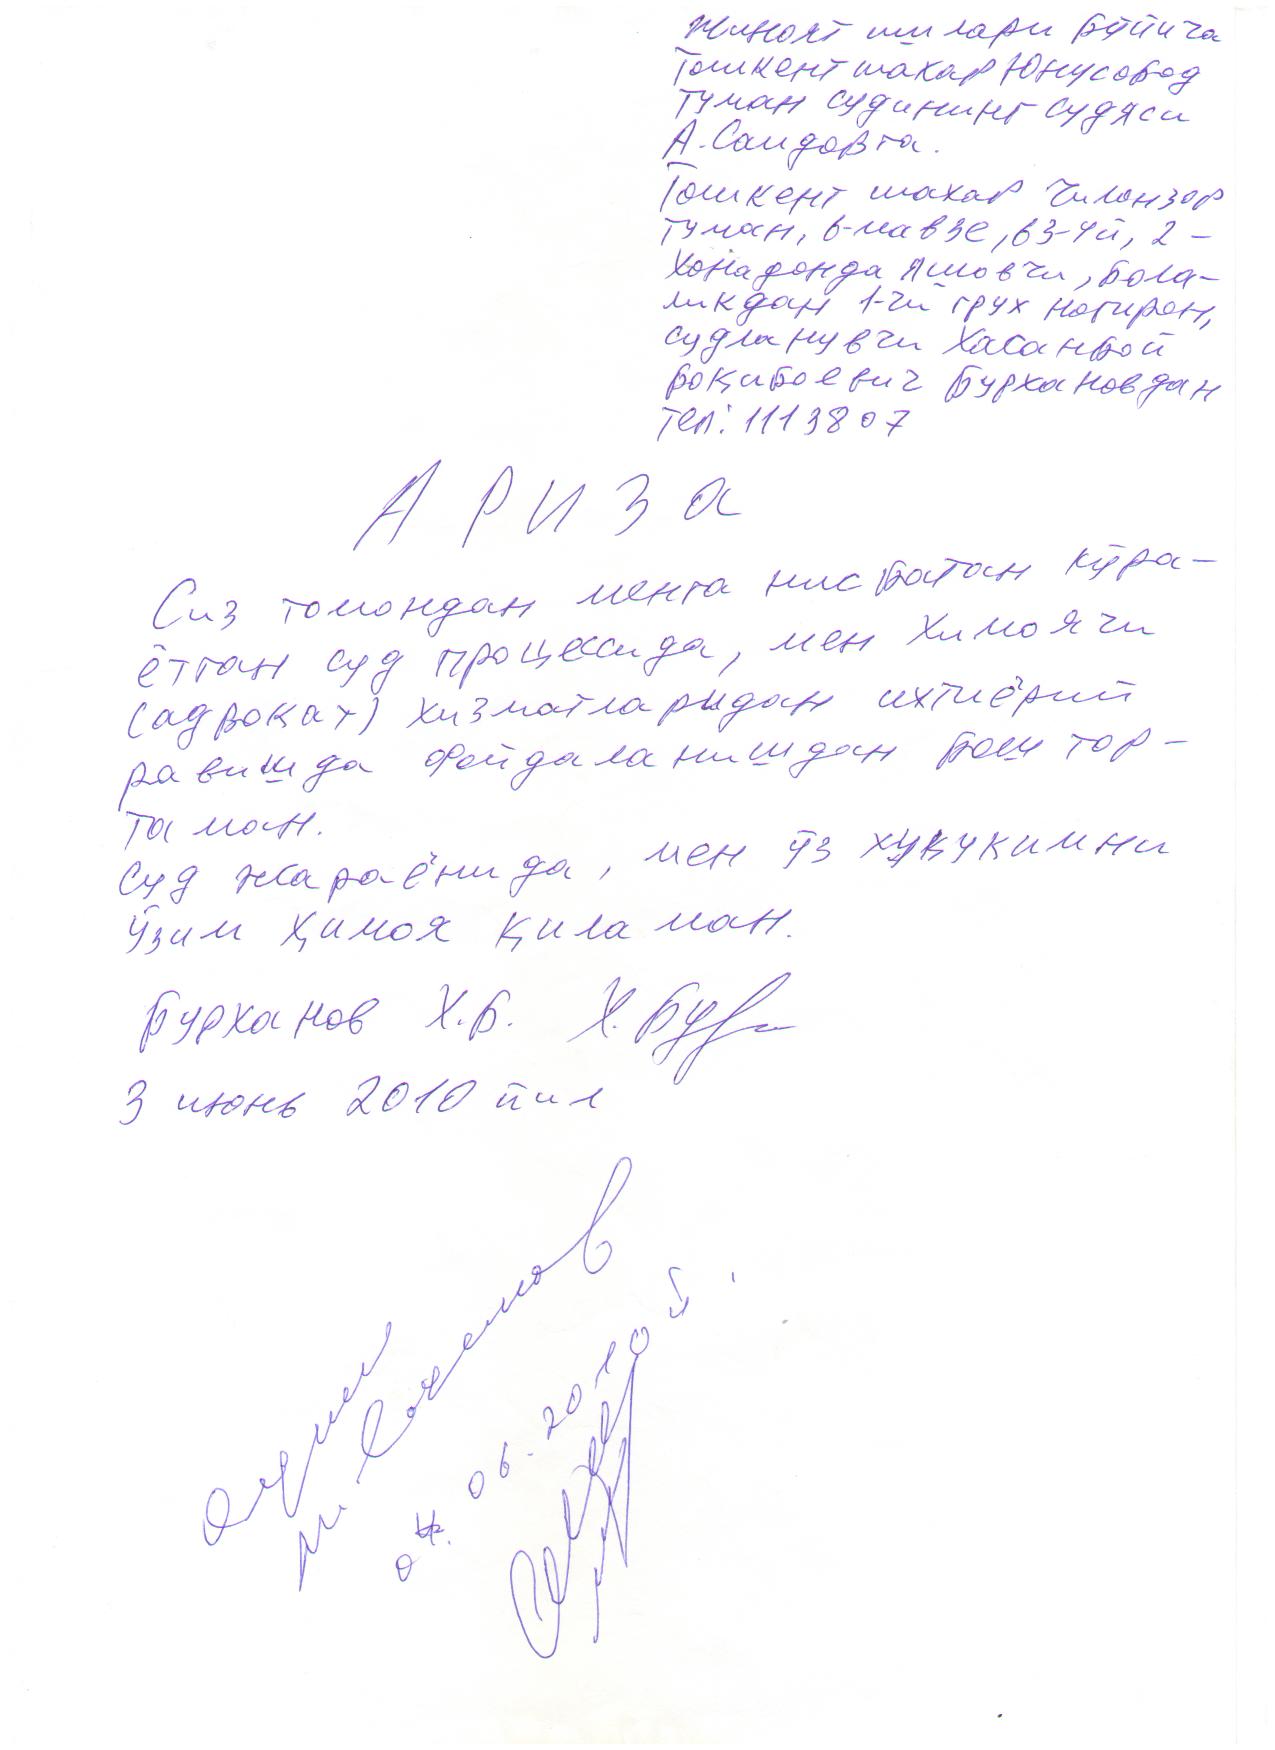 Жиноят ишлари бўйича
Тошкент шахар Юнусобод
туман судининг судяси
А. Саидовга.
Тошкент шахар Чилонзор
туман, 6-мавзе, 63-уй, 2-
хонадонда яшовчи, бола-
ликдан 1-чи грух ногирон,
судланувчи Хасанбой
Боқибоевич Бурхановдан
тел: 1113807
Ариза
Сиз томондан менга нисбатан кўра-
ётган суд процессида, мен химоячи
(адвокат) хизматларидан ихтиёрий
равишда фойдаланишдан бош тор-
таман.
Суд жараёнида, мен ўз хуқуқимни
ўзим ҳимоя қиламан.
Бурханов Х.Б. Х.Бур
3 июнь 2010 йил
04.06.2010 й.